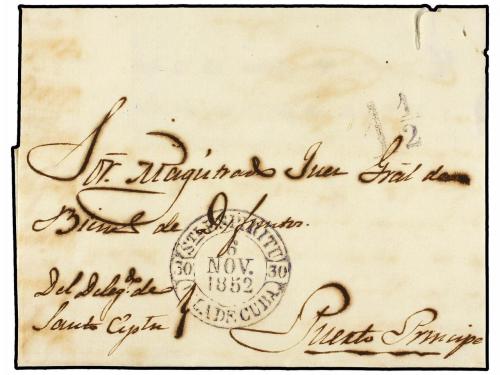 1 1/2
Sor. Magistrado Juez Gral de
Bienes de Difuntos.
STI. SPIRITU
6
NOV.
1852
30 30
ISLA DE CUBA
Del Delegdo. de
Santo Epto
Puerto Principe